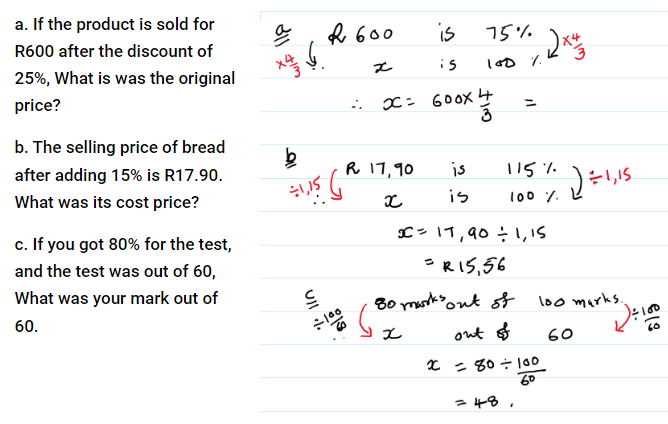 a. If the product is sold for
R600 after the discount of
25%, What is was the original
price?
b. The selling price of bread
after adding 15% is R17.90.
What was its cost price?
c. If you got 80% for the test,
and the test was out of 60,
What was your mark out of
60.
a R 600 is 75% ×4/3
×4/3 x is 100%
∴ x = 600 × 4/3 =
b R 17,90 is 115% ÷1,15
÷1,15 ∴ x is 100%
x = 17,90 ÷ 1,15
= R15,56
c 80 marks out of 100 marks. ÷100/60
÷100/60 ∴ x out of 60
x = 80 ÷ 100/60
= 48.